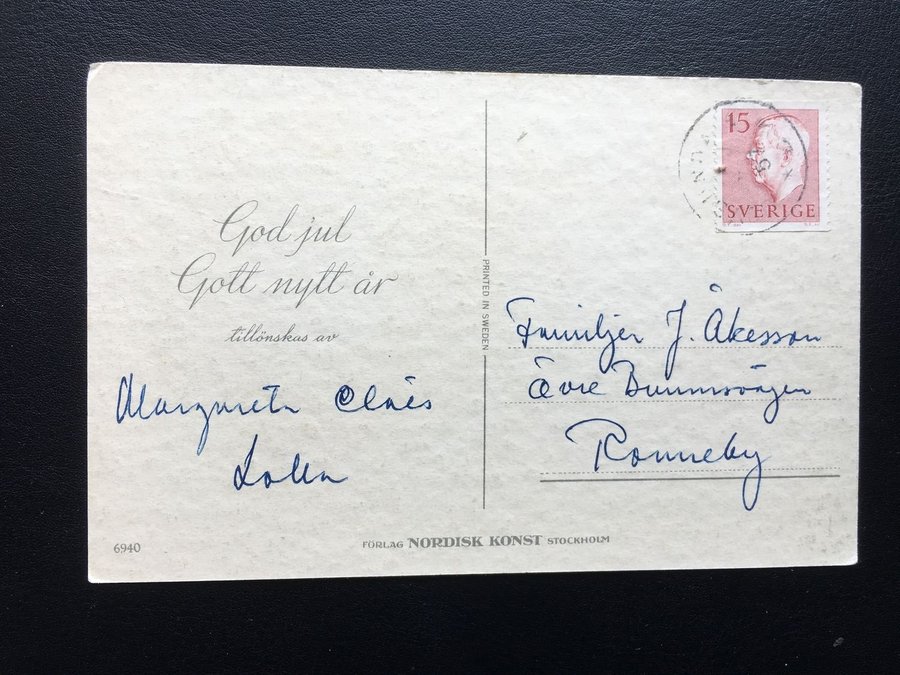 God jul
Gott nytt år
tillönskas av
Margareta Claës
Lolla
6940
FÖRLAG NORDISK KONST STOCKHOLM
PRINTED IN SWEDEN
15
SVERIGE
Familjen J. Åkesson
Övre Brunnsvägen
Ronneby